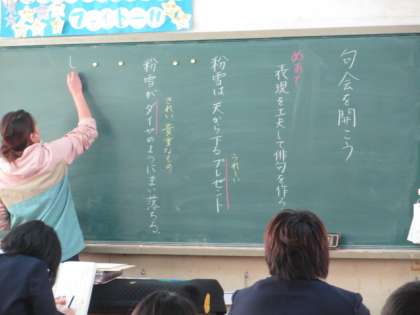 句会を開こう
めあて
表現を工夫して俳句を作ろ
うれしい
粉雪は天から下るプレゼント
きれい 貴重なもの
粉雪がダイヤのようにまい落ちる。
し